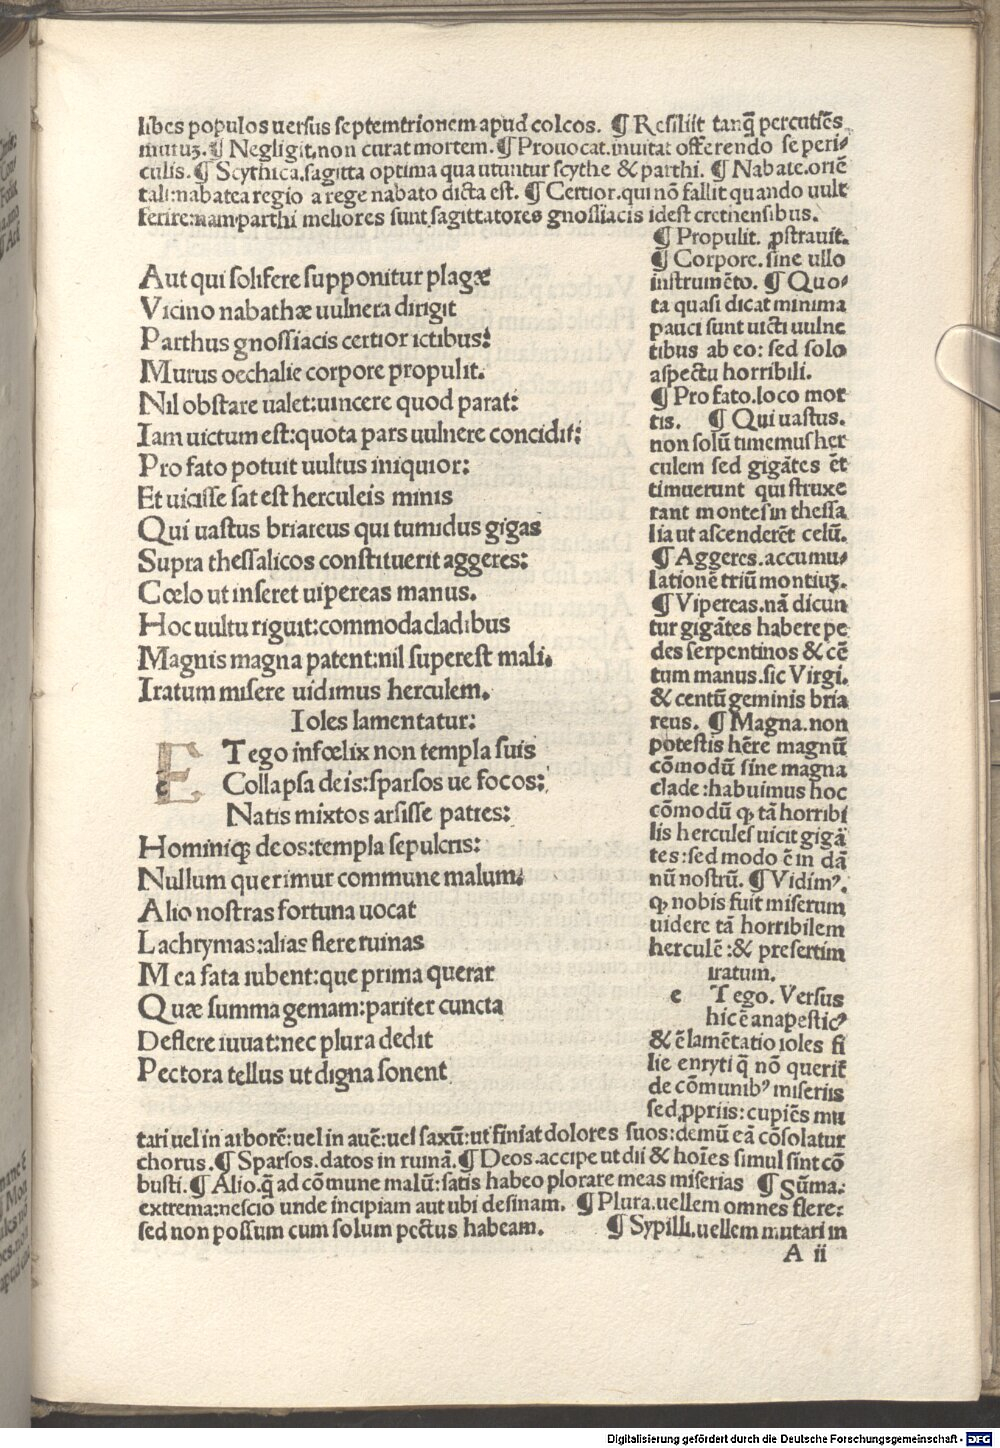 libes populos uersus septemtrionem apud colcos. ¶ Resiliit tanq̃ percutiẽs
muruȝ. ¶ Negligit.non curat mortem. ¶ Prouocat.inuitat offerendo se peri-
culis. ¶ Scythica.sagitta optima qua utuntur scythe & parthi. ¶ Nabate.oriẽ
tali:nabatea regio a rege nabato dicta est. ¶ Certior.qui nõ fallit quando uult
ferire:nam parthi meliores sunt sagittatores gnossiacis idest cretensibus.
Aut qui solifere supponitur plagæ
Vicino nabathæ uulnera dirigit
Parthus gnossiacis certior ictibus:
Murus oechalie corpore propulit.
Nil obstare ualet:uincere quod parat:
Iam uictum est:quota pars uulnere concidit:
Pro fato potuit uultus iniquior:
Et uicisse sat est herculeis minis
Qui uastus briareus qui tumidus gigas
Supra thessalicos constituerit aggeres:
Cœlo ut inseret uipereas manus.
Hoc uultu riguit:commoda cladibus
Magnis magna patent:nil superest mali.
Iratum misere uidimus herculem.
Ioles lamentatur:
E Tego infœlix non templa suis
Collapsa deis:sparsos ue focos:
Natis mixtos arsisse patres:
Hominiqȝ deos:templa sepulcris:
Nullum querimur commune malum:
Alio nostras fortuna uocat
Lachrymas:alias flere ruinas
Mea fata iubent:que prima querar
Quæ summa gemam:pariter cuncta
Deflere iuuat:nec plura dedit
Pectora tellus ut digna sonent
¶ Propulit. ꝓstrauit.
¶ Corpore. sine ullo
instrumẽto. ¶ Quo-
ta quasi dicat minima
pauci sunt uicti uulne
tibus ab eo: sed solo
aspectu horribili.
¶ Pro fato.loco mor
tis. ¶ Qui uastus.
non solũ timemus her
culem sed gigãtes ẽt
timuerunt qui struxe
rant montes in thessa
lia ut ascenderẽt celũ.
¶ Aggeres.accumu-
lationẽ triũ montiuȝ.
¶ Vipereas.nã dicun
tur gigãtes habere pe
des serpentinos & cẽ
tum manus.sic Virgi.
& centũ geminis bria
reus. ¶ Magna.non
potestis hẽre magnũ
cõmodũ sine magna
clade:habuimus hoc
cõmodũ ꝙ tã horribi
lis hercules uicit gigã
tes:sed modo ẽ in dã
nũ nostrũ. ¶ Vidimꝰ.
ꝙ nobis fuit miserum
uidere tã horribilem
herculẽ:& presertim
iratum.
e Tego. Versus
hic ẽ anapesticꝰ
& ẽ lamẽtatio ioles fi
lie enryti q̃ nõ querit̃
de cõmunibꝰ miseriis
sed ꝓpriis:cupiẽs mu
tari uel in arborẽ:uel in auẽ:uel saxũ:ut finiat dolores suos:demũ eã cõsolatur
chorus. ¶ Sparsos.datos in ruinã. ¶ Deos.accipe ut dii & hoĩes simul sint cõ
busti. ¶ Alio.q̃ ad cõmune malũ:satis habeo plorare meas miserias ¶ Sũma:
extrema:nescio unde incipiam aut ubi desinam. ¶ Plura.uellem omnes flere:
sed non possum cum solum pectus habeam. ¶ Sypilli.uellem mutari in
A ii
Digitalisierung gefördert durch die Deutsche Forschungsgemeinschaft - DFG